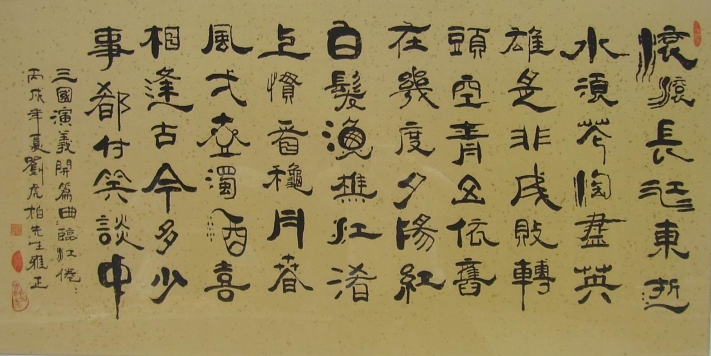 滾滾長江東逝
水浪花淘盡英
雄是非成敗轉
頭空青山依舊
在幾度夕陽紅
白髮漁樵江渚
上慣看穐月春
風弌壺濁酒喜
相逢古今多少
事都付笑談中
三國演義開篇曲臨江僊
丙戌年夏劉虎柏先生雅正